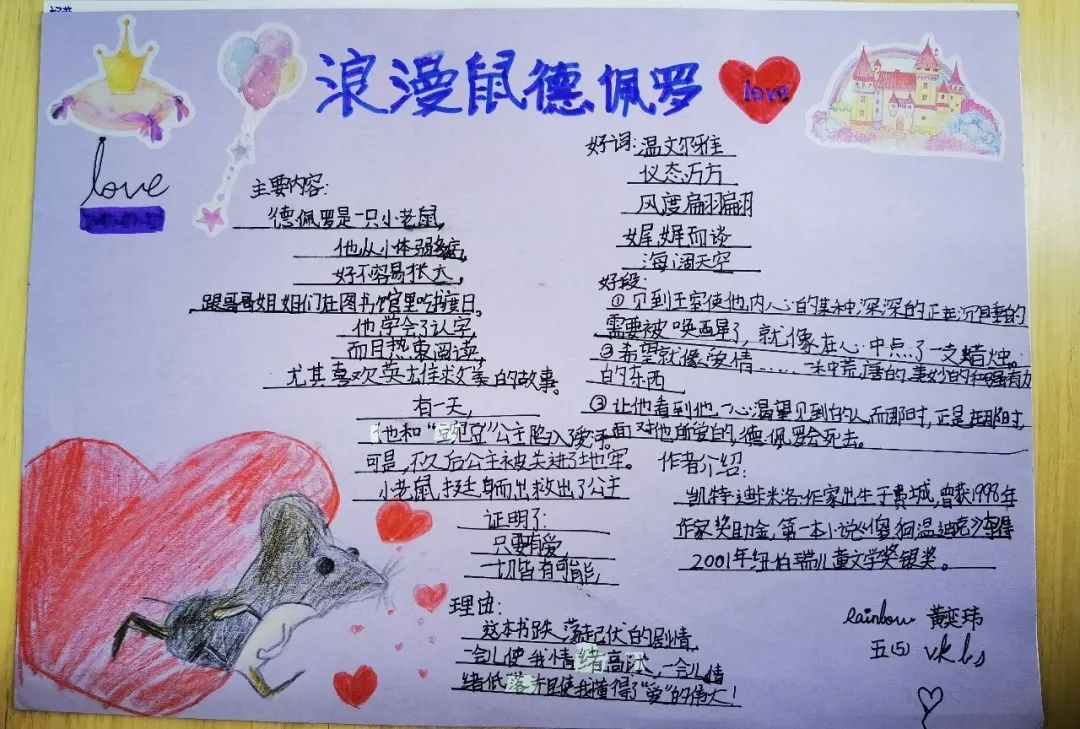 浪漫鼠德佩罗
love
love
主要内容:
德佩罗是一只小老鼠,
他从小体弱多病,
好不容易长大,
跟哥哥姐姐们在图书馆里吃书度日。
他学会了认字,
而且热衷阅读,
尤其喜欢英雄救美的故事。
有一天,
他和“豌豆”公主陷入了爱河。
可是,不久后公主被关进了地牢。
小老鼠挺身而出救出了公主
证明了:
只要有爱,
一切皆有可能,
理由:
这本书跌荡起伏的剧情,
一会儿使我情绪高涨,一会儿情
绪低落并且使我懂得了“爱”的伟大!
好词:温文尔雅
仪态万方
风度翩翩
娓娓而谈
海阔天空
好段:
①见到王室使他内心的某种深深的正在沉睡的
需要被唤醒了,就像在心中点了一支蜡烛。
②希望就像爱情……一种荒唐的,美妙的和强有力
的东西
③让他看到他一心渴望见到的人,而那时,正是在那时,
面对他所爱的,德佩罗会死去。
作者介绍:
凯特·迪卡米洛.作家出生于费城,曾获1998年
作家奖助金,第一本小说《傻狗温迪克》
2001年纽伯瑞儿童文学奖银奖。
rainbow 黄奕玮
五(5)